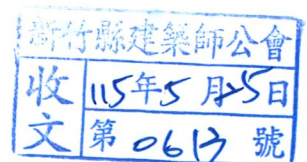 新竹縣建築師公會
收文
115年5月25日
第0613號